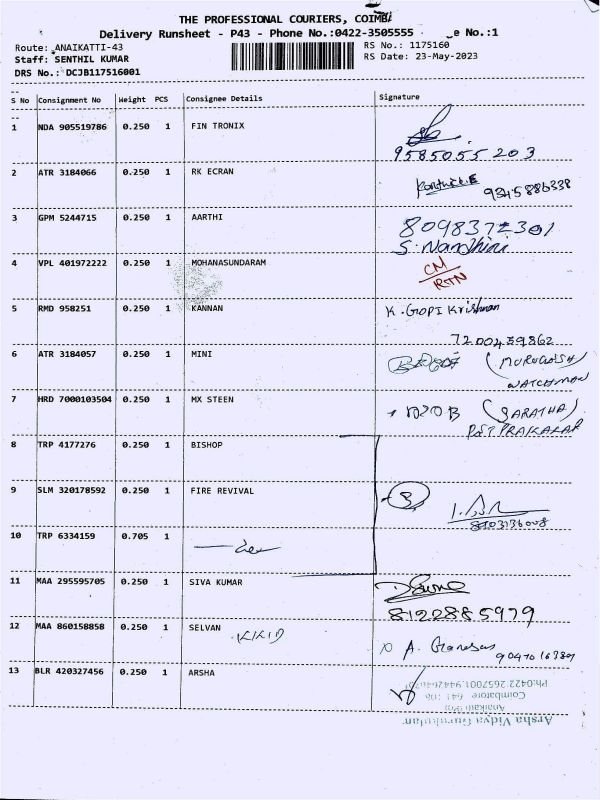 THE PROFESSIONAL COURIERS, COIMB
Delivery Runsheet - P43 - Phone No.:0422-3505555 e No.:1
Route: ANAIKATTI-43 RS No.: 1175160
Staff: SENTHIL KUMAR RS Date: 23-May-2023
DRS No.: DCJB117516001
S No Consignment No Weight PCS Consignee Details Signature
1 NDA 905519786 0.250 1 FIN TRONIX
9585055203
2 ATR 3184066 0.250 1 RK ECRAN
9345886338
3 GPM 5244715 0.250 1 AARTHI 8098372301
S. Nandhini
4 VPL 401972222 0.250 1 MOHANASUNDARAM CM
RTN
5 RMD 958251 0.250 1 KANNAN K. GOPI Krishnan
7200439862
6 ATR 3184057 0.250 1 MINI
WATCHMAN
7 HRD 7000103504 0.250 1 MX STEEN (SARATHA)
8 TRP 4177276 0.250 1 BISHOP
9 SLM 320178592 0.250 1 FIRE REVIVAL
10 TRP 6334159 0.705 1
11 MAA 295595705 0.250 1 SIVA KUMAR
8122885979
12 MAA 860158858 0.250 1 SELVAN A. Ganesan
13 BLR 420327456 0.250 1 ARSHA
Ph:0422 2657001,
Coimbatore 641 108
Anaikatti (PO)
Arsha Vidya Gurukulam